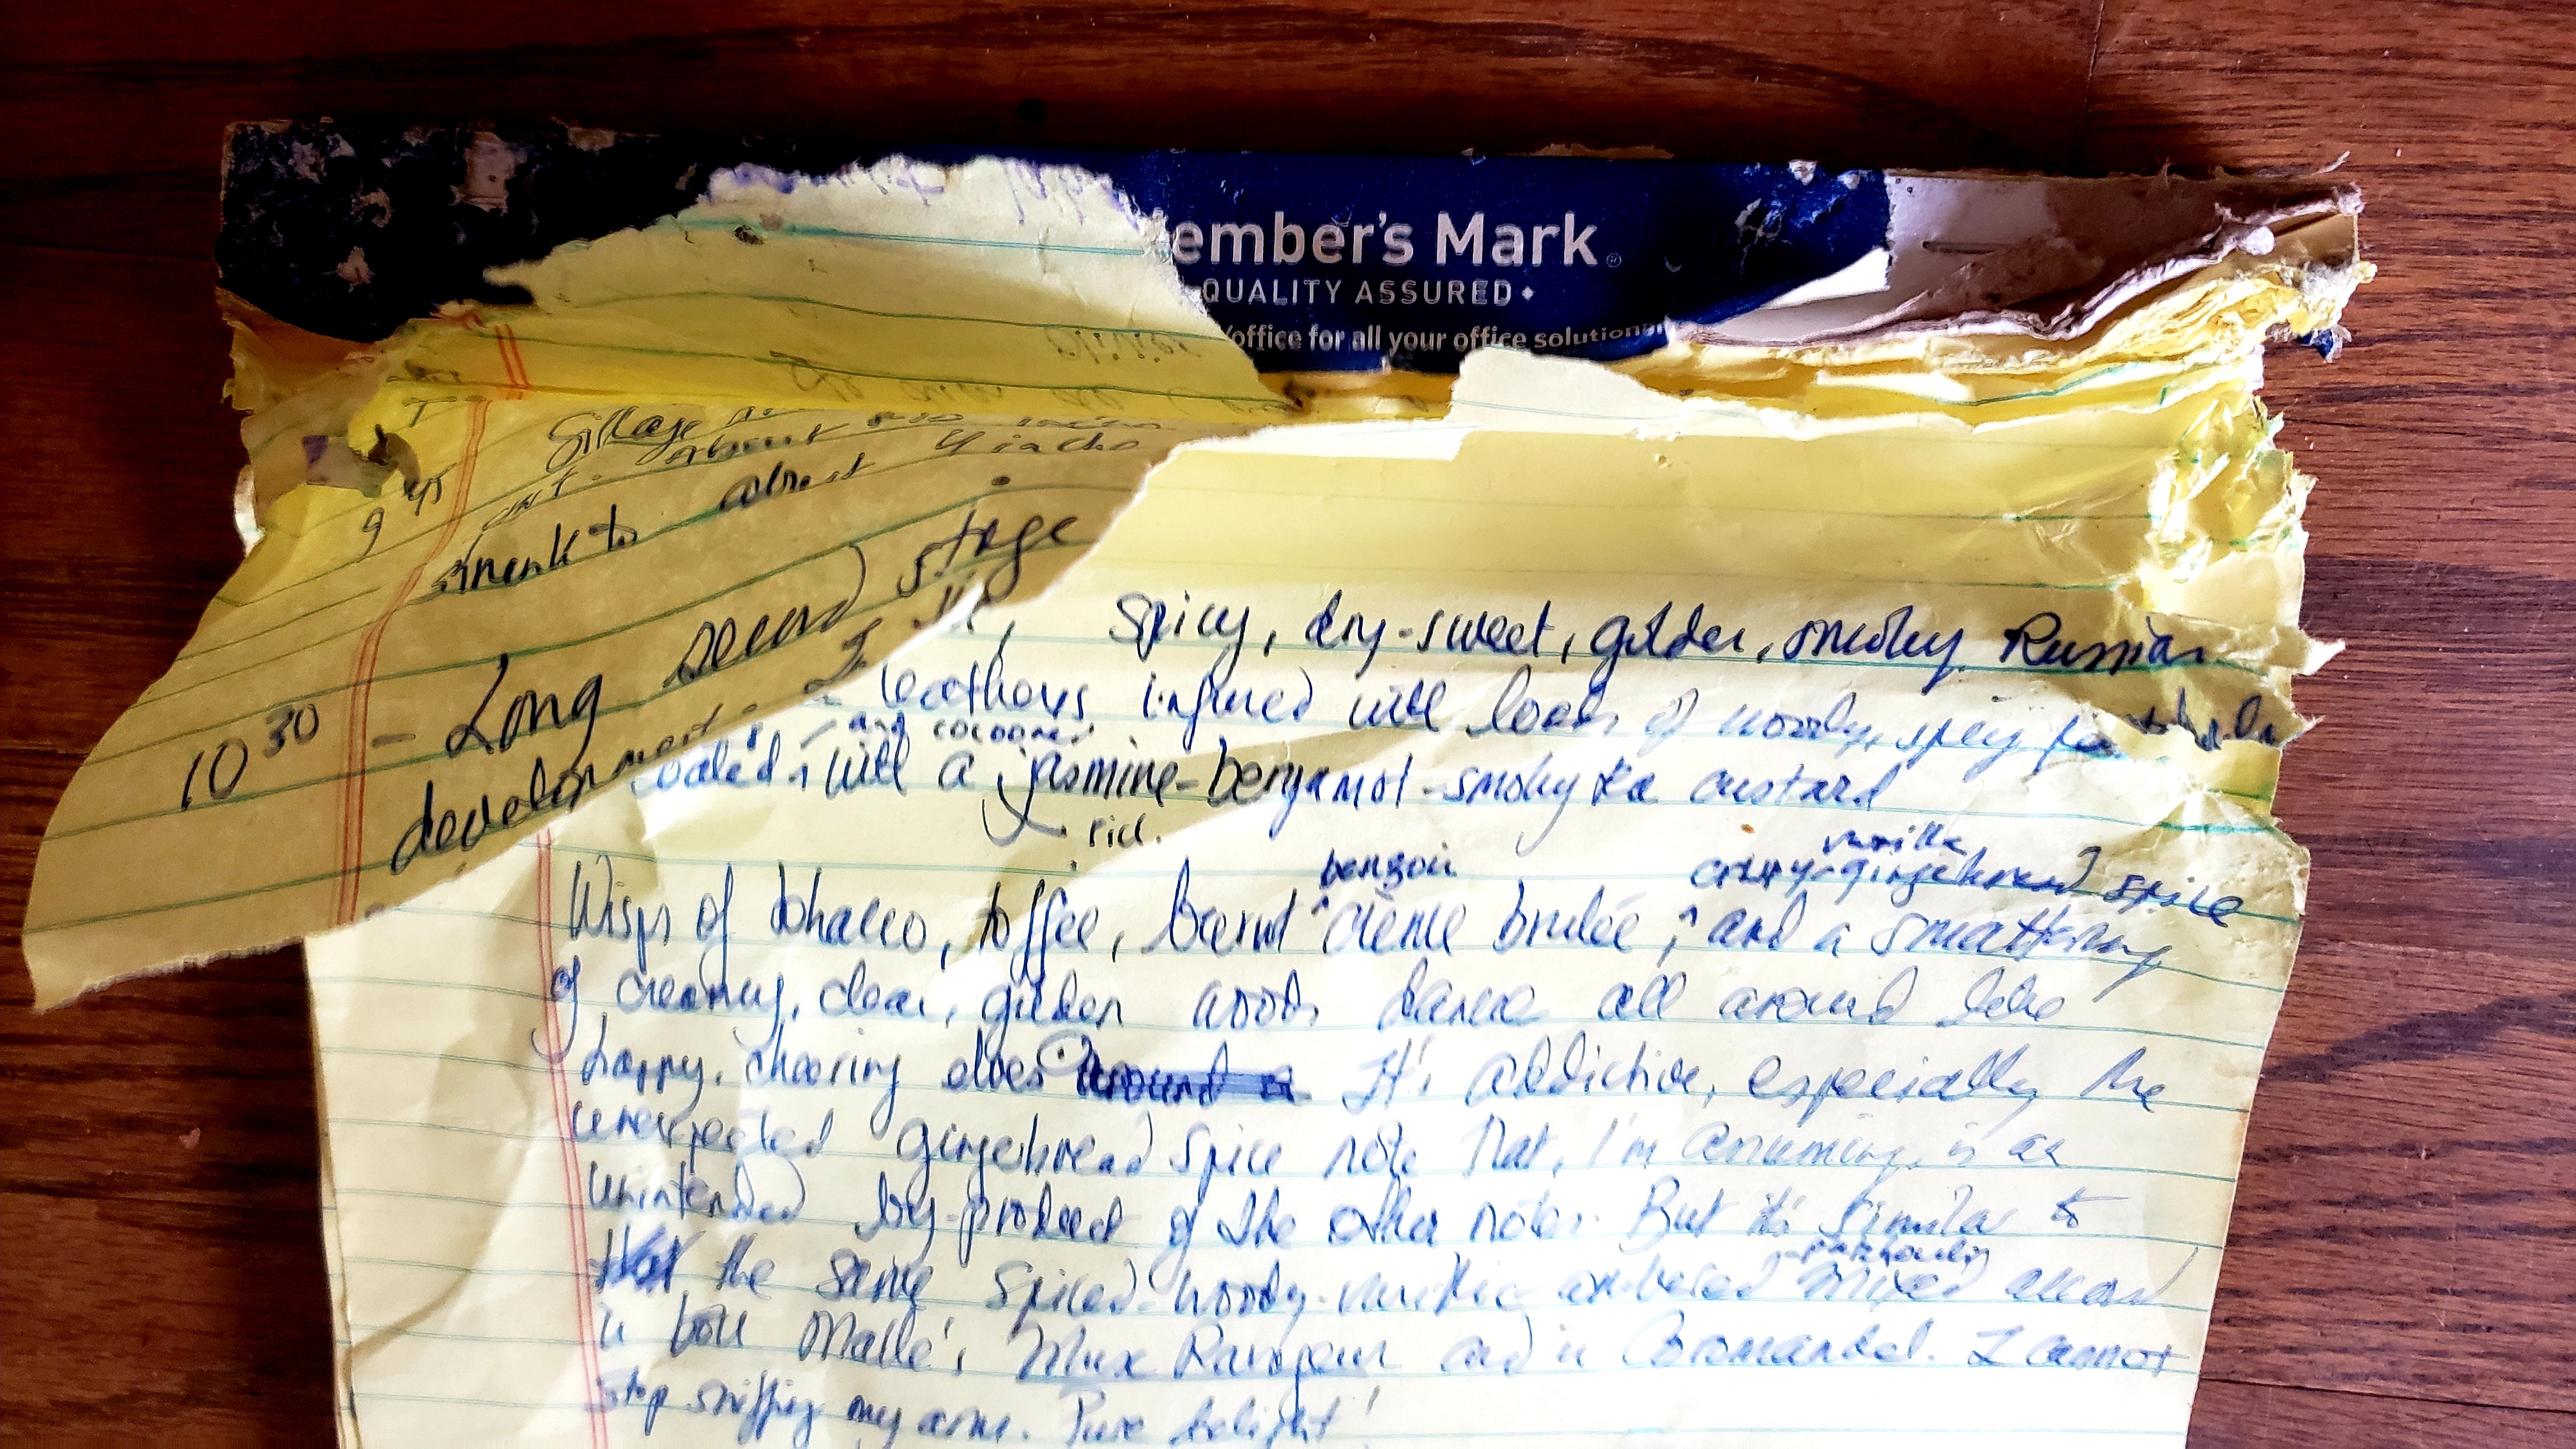 ember's Mark®
QUALITY ASSURED
office for all your office solution
Sillage
9 45 out. about
shrank to about 4 inches
10 30 - Long second stage
development.
Spicy, dry-sweet, golden, smoky Russian
leathers infused with loads of woody, spicy patchouli
and cocooned
coated with a jasmine-bergamot-smoky tea custard
rich
benzoin
vanilla
crispy-gingerbread spice
Wisps of tobacco, toffee, burnt crème brulée, and a smattering
of creamy, clear, golden woods dance all around like
happy, cheering elves. around a It's addictive, especially the
unexpected gingerbread spice note that, I'm assuming, is an
unintended by-product of the other notes. But it's similar to
patchouli
the same spiced-woody-vanillic ambered mixed accord
in both Malle's Musc Ravageur and in Coromandel. I cannot
stop sniffing my arm. Pure delight!